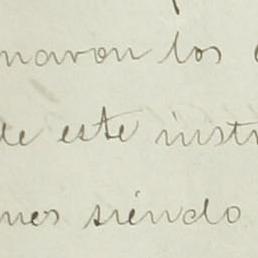 maron los
de este instr
mes siendo